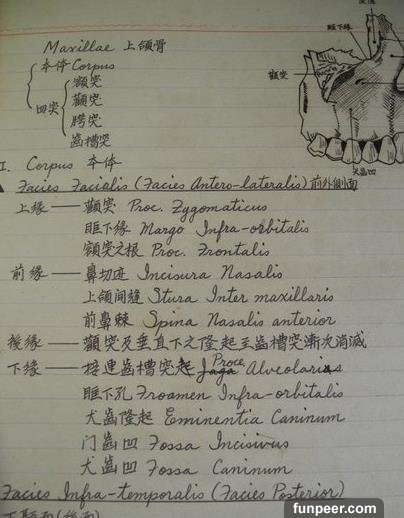 Maxillae 上頜骨
本体 Corpus
四突
額突
顴突
腭突
齒槽突
I. Corpus 本体
Facies Facialis (Facies Antero-lateralis) 前外側面
上緣 — 顴突 Proc. Zygomaticus
眶下緣 Margo Infra-orbitalis
額突之根 Proc. Frontalis
前緣 — 鼻切迹 Incisura Nasalis
上頜间縫 Stura Inter maxillaris
前鼻棘 Spina Nasalis anterior
後緣 — 顴突及垂直下之隆起至齒槽突漸次消滅
下緣 — 接連齒槽突起 Proce Alveolaris
眶下孔 Froamen Infra-orbitalis
犬齒隆起 Eminentia Caninum
门齒凹 Fossa Incisivus
犬齒凹 Fossa Caninum
Facies Infra-temporalis (Facies Posterior)
眶下緣
顴突
犬齒凹
funpeer.com